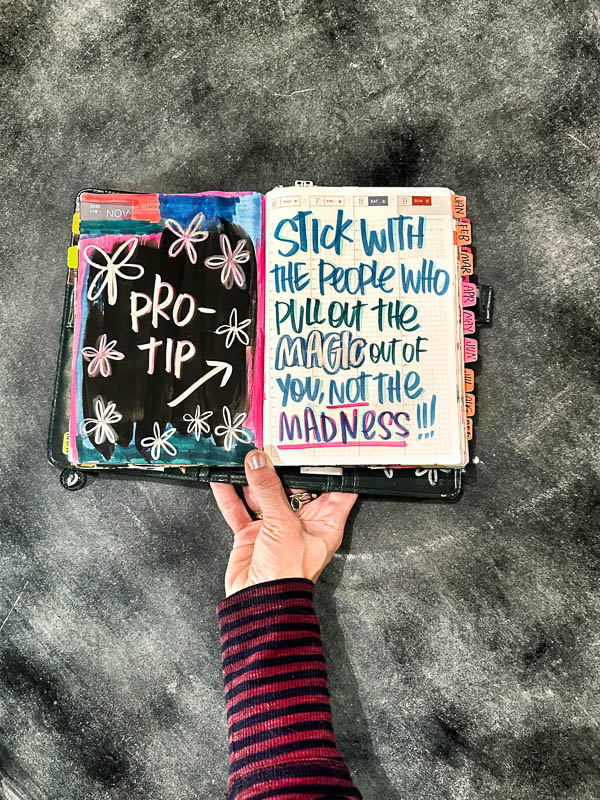 NOV
PRO-
TIP
6 7 FRI 8 SAT 9 SUN
STICK WITH
THE PEOPLE WHO
PULL OUT THE
MAGIC OUT OF
YOU, NOT THE
MADNESS!!!
JAN
FEB
MAR
APR
MAY
JUN
JUL
AUG